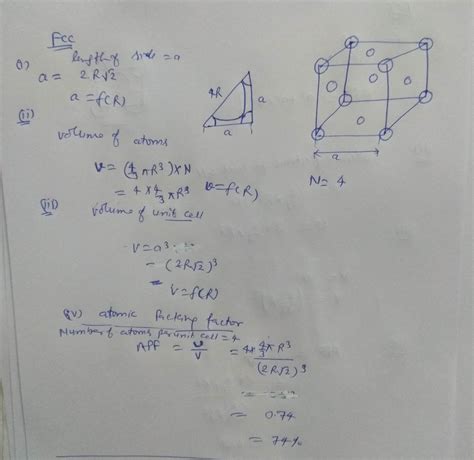 FCC
(i) length of side = a
a = 2R√2
a = f(R)
4R
a
a
a
N = 4
(ii)
volume of atoms
v = (4/3 πR³) × N
= 4 × 4/3 πR³
v = f(R)
(iii) volume of unit cell
V = a³
= (2R√2)³
= V = f(R)
(iv) atomic Packing factor
Number of atoms per unit cell = 4
APF = v/V = 4 × 4/3 π R³ / (2R√2)³
= 0.74
= 74%